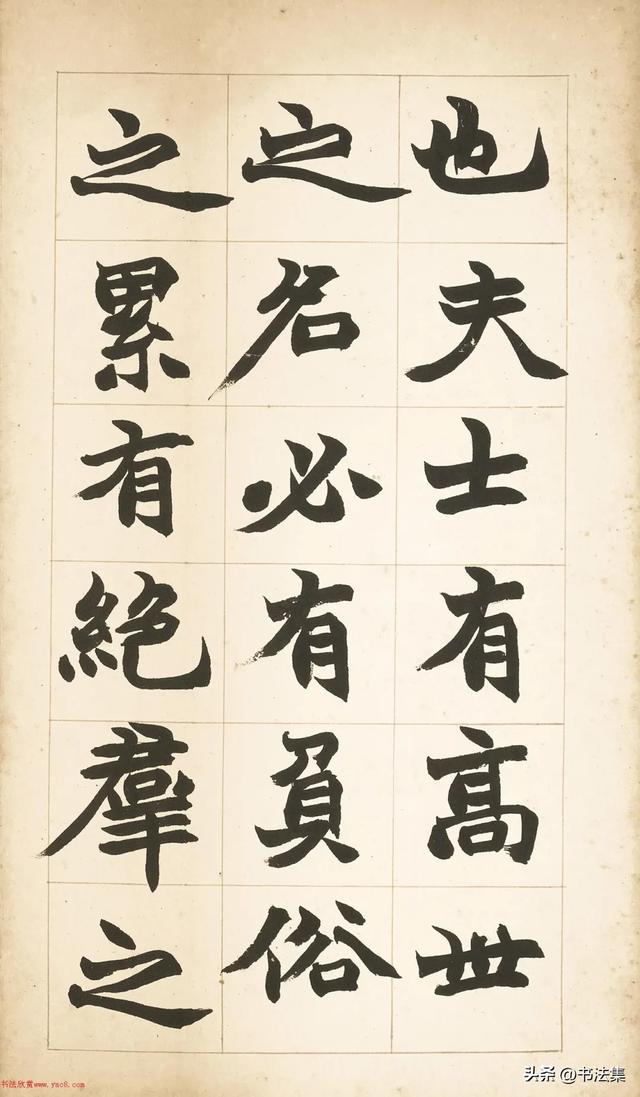 也夫士有高世
之名必有負俗
之累有絶羣之
书法欣赏www.yac8.com
头条 @书法集